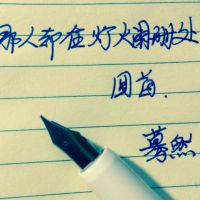 那人却在灯火阑珊处
回首.
蓦然